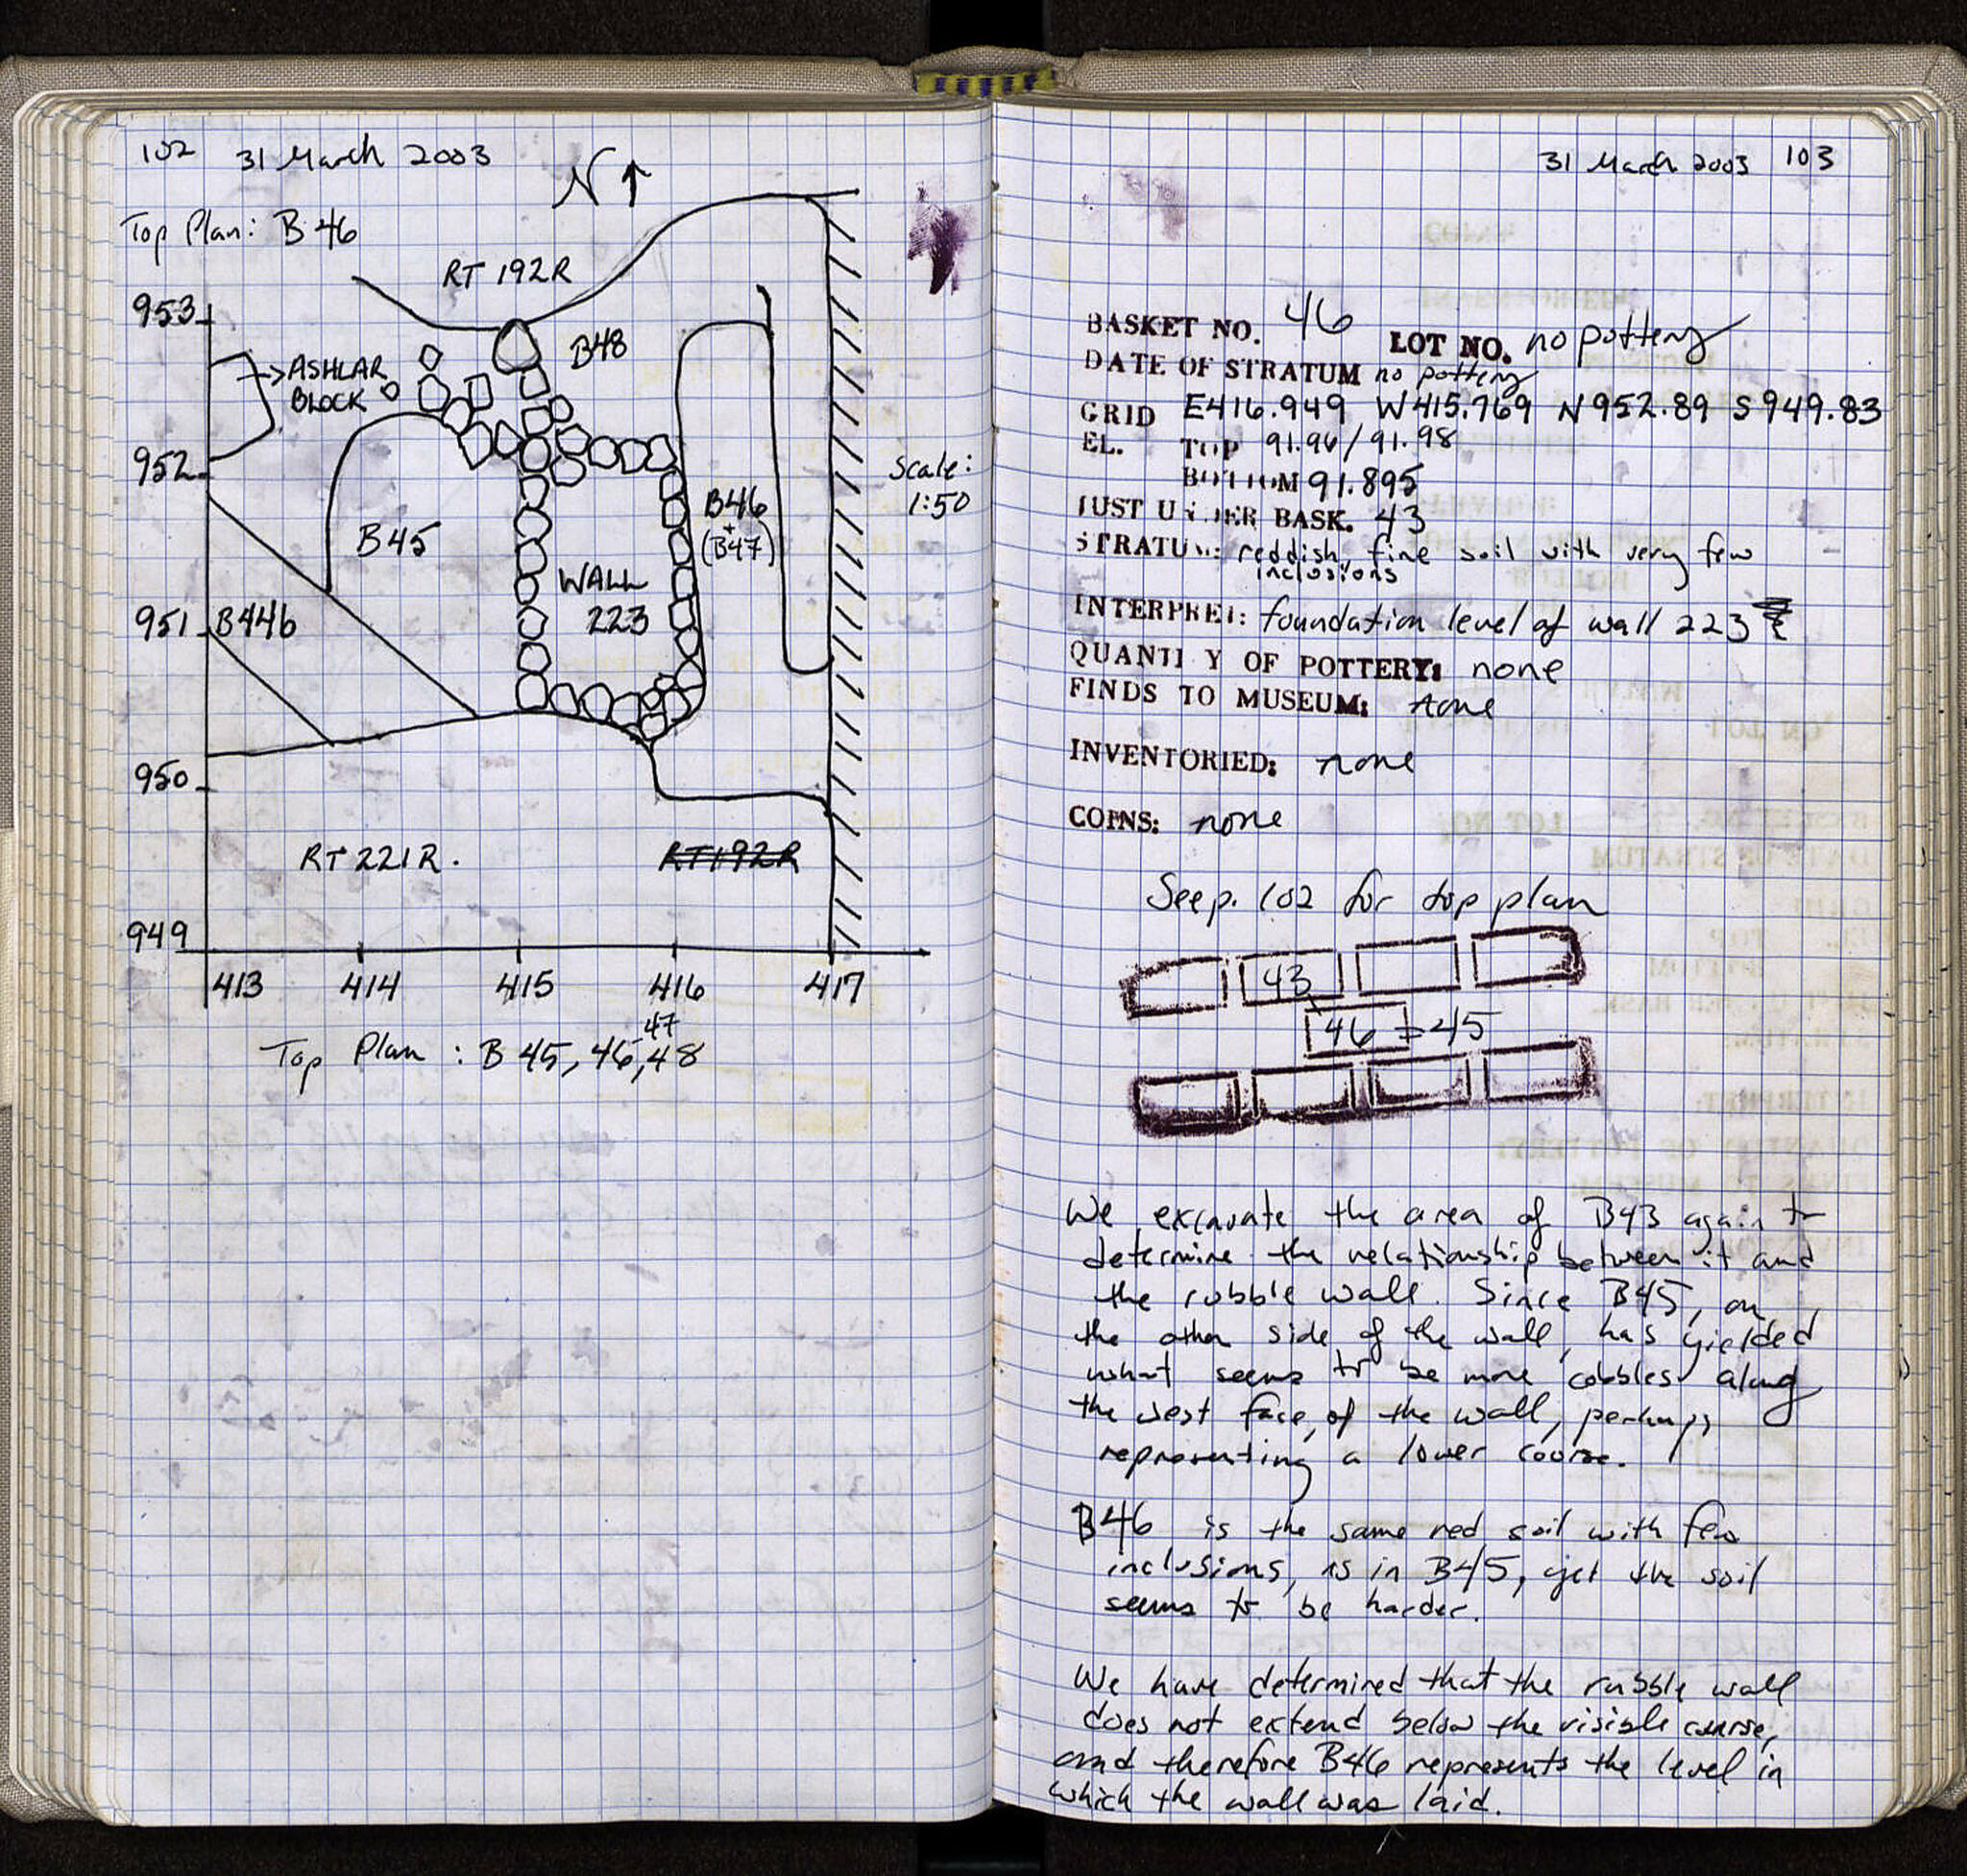 102 31 March 2003
N ↑
Top Plan: B 46
RT 192R
953
B48
→ASHLAR
BLOCK
952
Scale:
1:50
B46
+
(B47)
B45
WALL
223
951 B44b
950
RT 221R. RT192R
949
413 414 415 416 417
47
Top Plan : B 45, 46, 48
31 March 2003 103
BASKET NO. 46 LOT NO. no pottery
DATE OF STRATUM no pottery
GRID E416.949 W415.769 N952.89 S949.83
EL. TOP 91.96/91.98
BOTTOM 91.895
JUST UNDER BASK. 43
STRATUM: reddish fine soil with very few
inclusions
INTERPRET: foundation level of wall 223
QUANTI Y OF POTTERY: none
FINDS TO MUSEUM: none
INVENTORIED: none
COINS: none
See p. 102 for top plan
43
46 = 45
We excavate the area of B43 again to
determine the relationship between it and
the rubble wall. Since B45, on
the other side of the wall, has yielded
what seems to be more cobbles along
the west face, of the wall, perhaps
representing a lower course.
B46 is the same red soil with few
inclusions, as in B45, yet the soil
seems to be harder.
We have determined that the rubble wall
does not extend below the visible course,
and therefore B46 represents the level in
which the wall was laid.